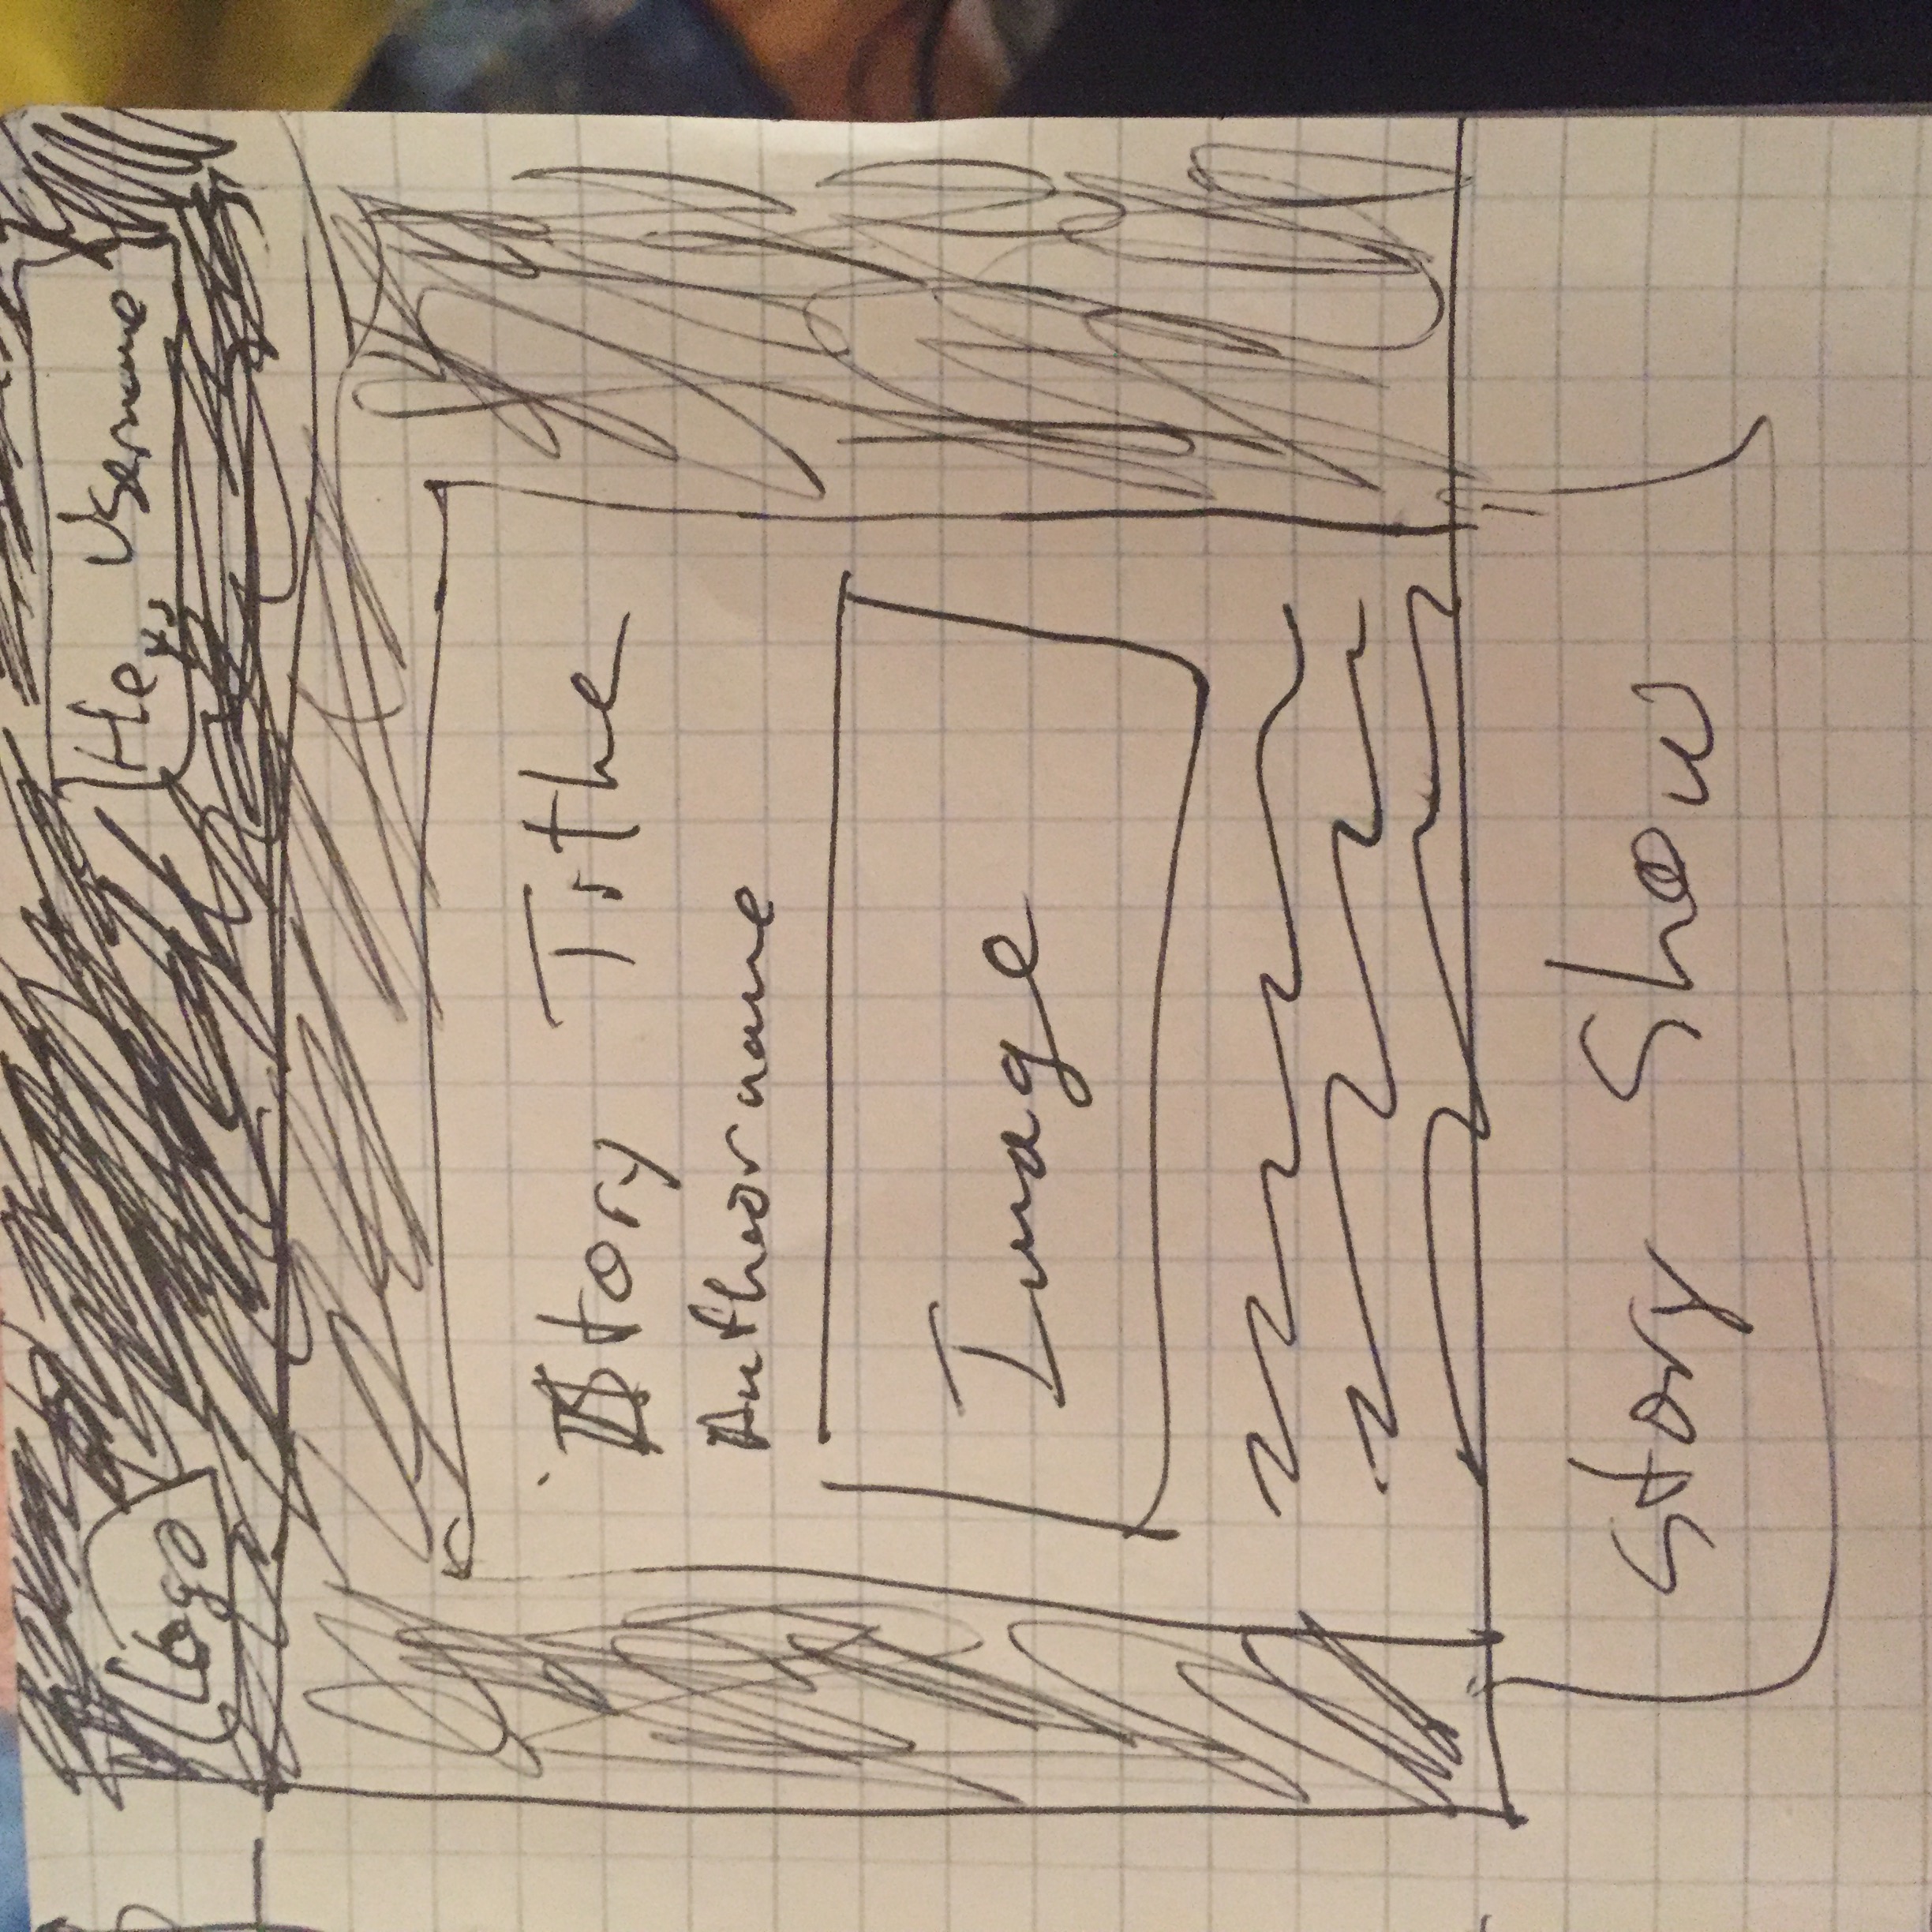 Logo
Hey, Username
Story Title
Authorname
Image
Story Show